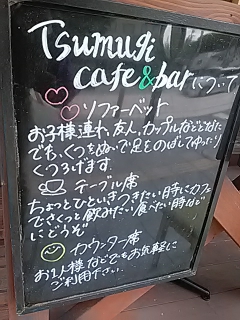 Tsumugi
cafe&barについて
ソファーベット
お子様連れ、友人、カップルなどどなた
でも、くつをぬいで足をのばしてゆったり
くつろげます
テーブル席
ちょっとひといきつきたい時にカフェ
でさくっと飲みたい食べたい時など
にどうぞ
カウンター席
お1人様などでもお気軽に
ご利用下さい。